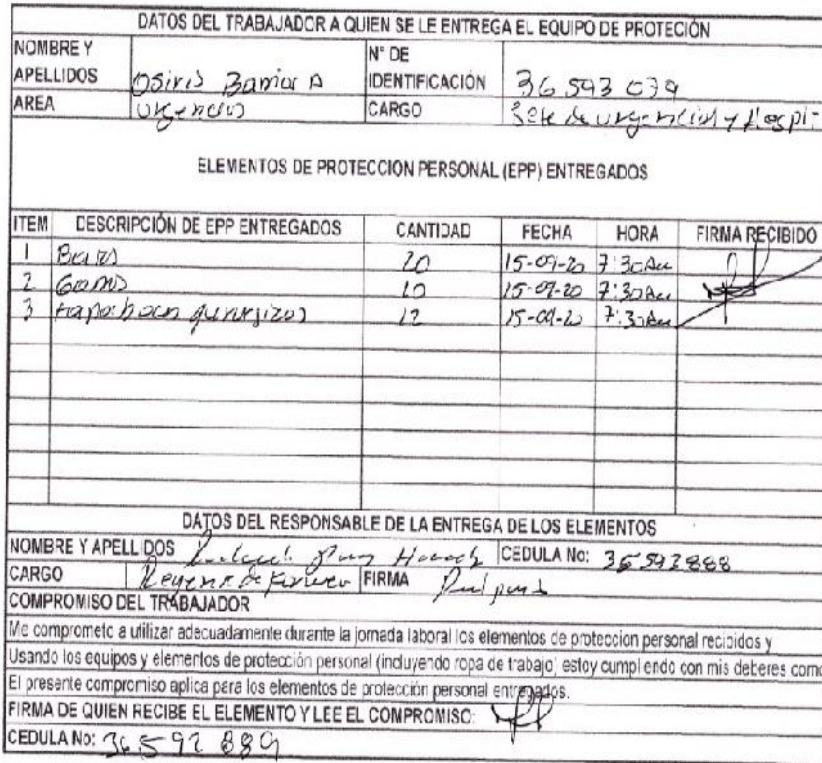 DATOS DEL TRABAJADOR A QUIEN SE LE ENTREGA EL EQUIPO DE PROTECIÓN
NOMBRE Y APELLIDOS Osiris Barrios A N° DE IDENTIFICACIÓN 36 593 079
AREA Urgencias CARGO Jefe de urgencias y Hospi-
ELEMENTOS DE PROTECCION PERSONAL (EPP) ENTREGADOS
ITEM DESCRIPCIÓN DE EPP ENTREGADOS CANTIDAD FECHA HORA FIRMA RECIBIDO
1 Batas 20 15-09-20 7:30Am
2 Gorros 10 15-09-20 7:30Am
3 tapabocas 12 15-09-20 7:30Am
DATOS DEL RESPONSABLE DE LA ENTREGA DE LOS ELEMENTOS
NOMBRE Y APELLIDOS CEDULA No: 36592888
CARGO Regente de FIRMA
COMPROMISO DEL TRABAJADOR
Me comprometo a utilizar adecuadamente durante la jornada laboral los elementos de proteccion personal recibidos y
Usando los equipos y elementos de protección personal (incluyendo ropa de trabajo) estoy cumpliendo con mis deberes como
El presente compromiso aplica para los elementos de protección personal entregados.
FIRMA DE QUIEN RECIBE EL ELEMENTO Y LEE EL COMPROMISO:
CEDULA No: 36592889